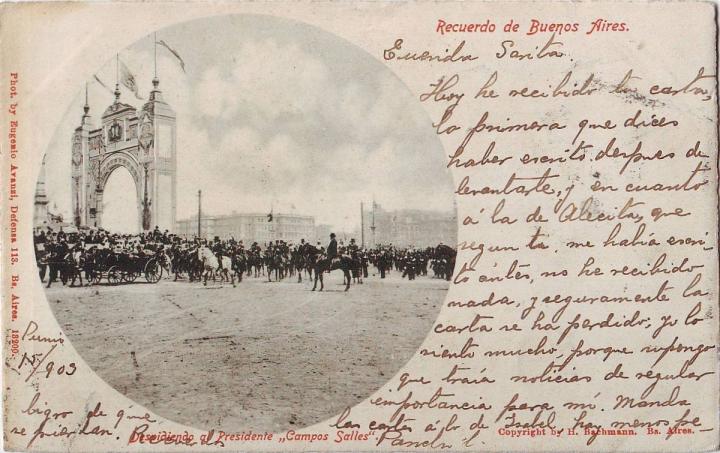 Recuerdo de Buenos Aires.
Querida Sarita.
Hoy he recibido tu carta,
la primera que dices
haber escrito despues de
levantarte, y en cuanto
á la de Alecita, que
segun tu me había escri
to ántes, no he recibido
nada, y seguramente la
carta se ha perdido; yo lo
siento mucho, porque supongo
que traía noticias de regular
importancia para mí. Manda
las cartas á lo de Isabel, hay menos pe-
ligro de que
se pierdan. Recuerdos
Junio
/903
Despidiendo al Presidente „Campos Salles".
Copyright by H. Bachmann. Bs. Aires.
Phot. by Eugenio Avanzi, Defensa 113. Bs. Aires. 13200.